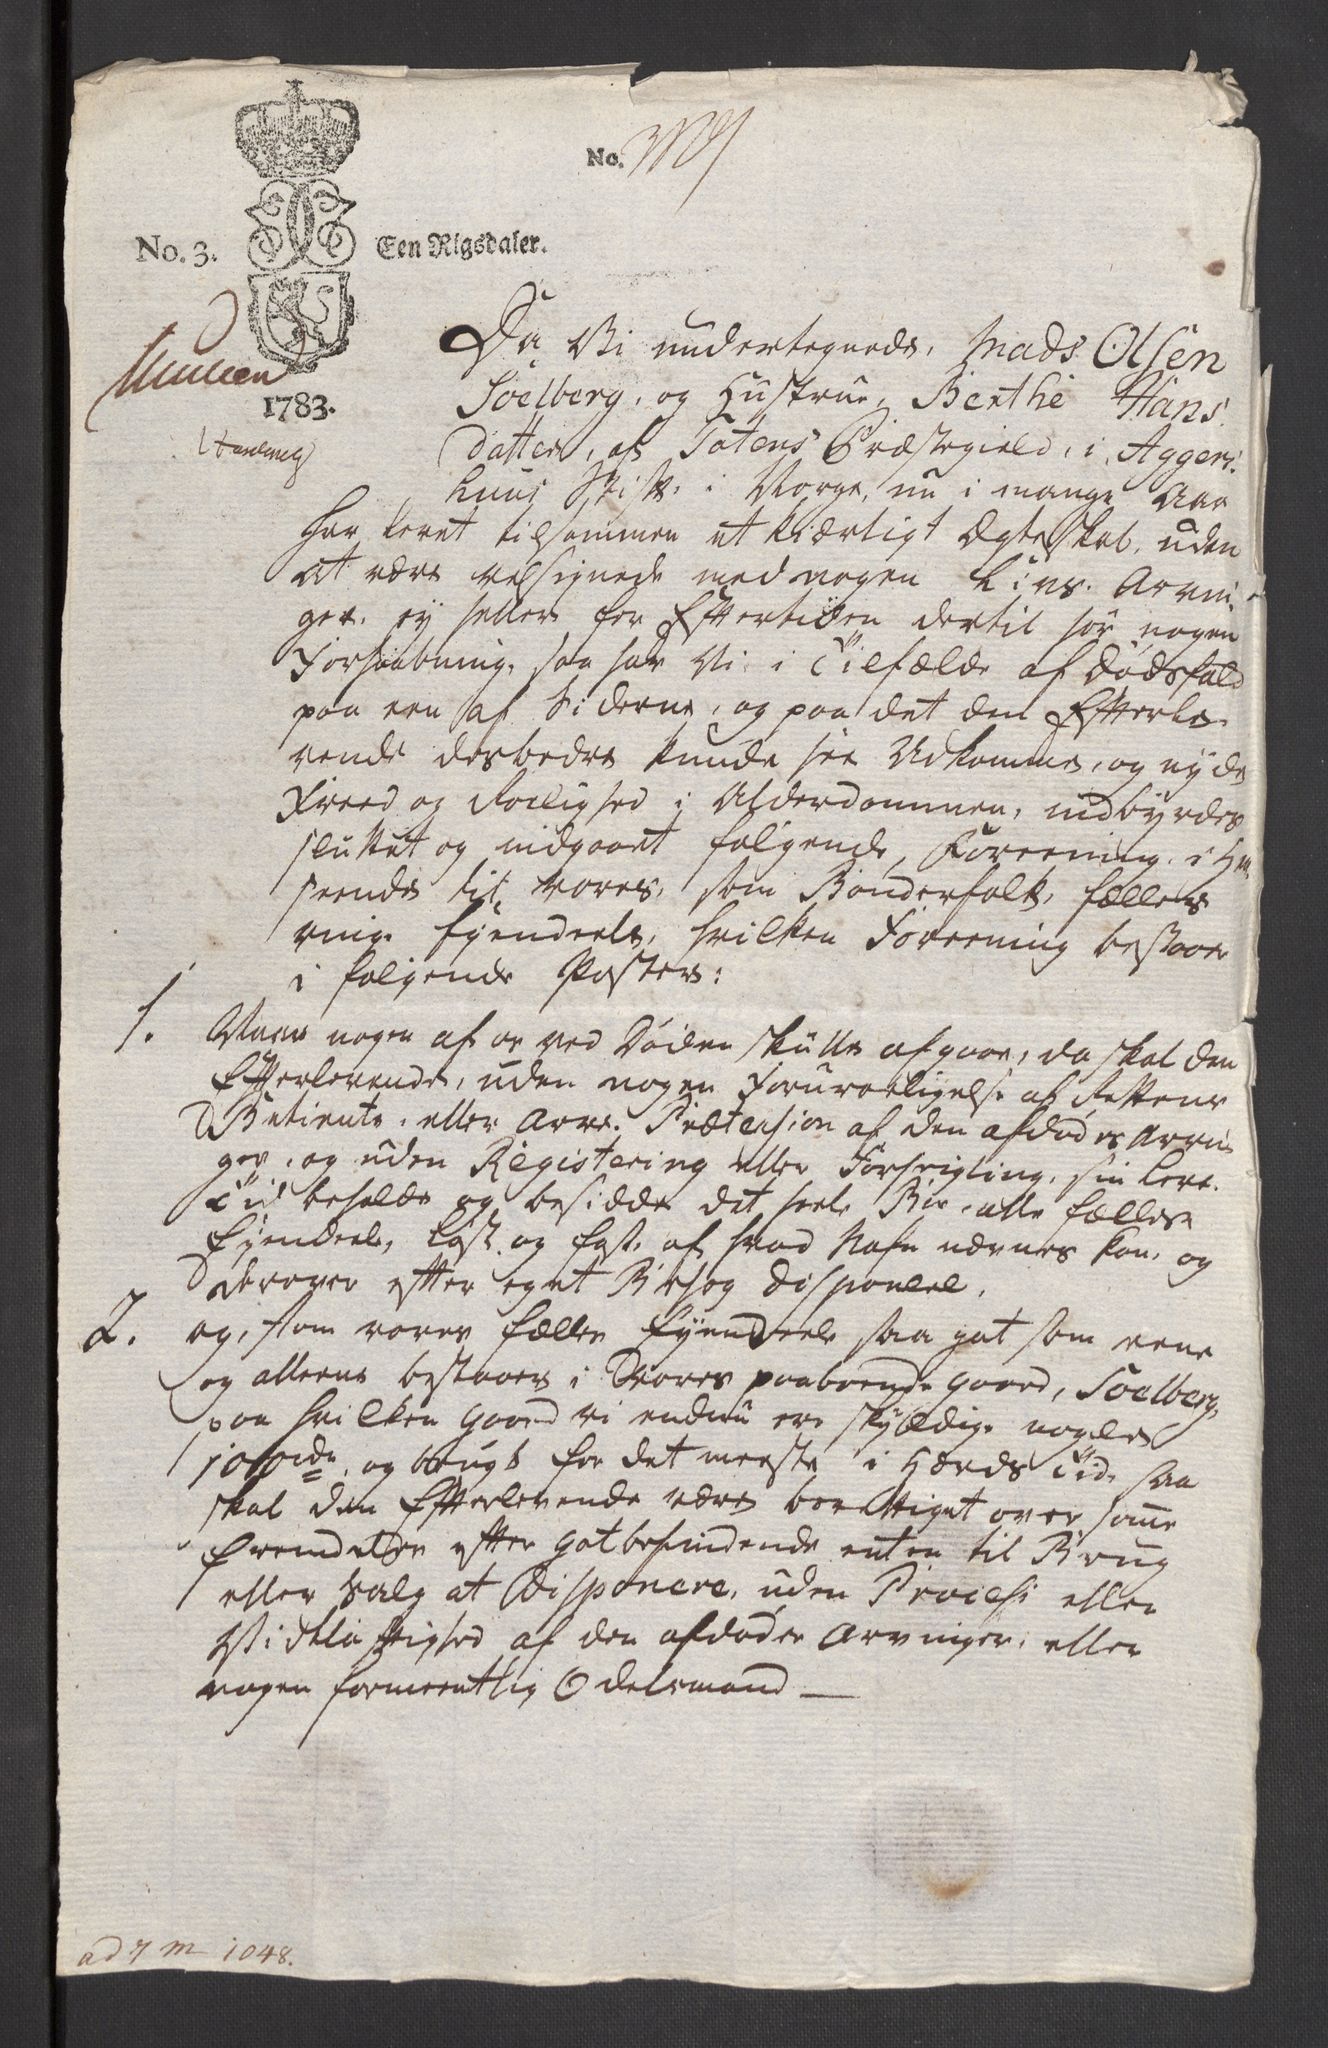 No.
No. 3. Een Rigsdaler.
1783.
Da Vi undertegnede, Mads Olsen
Soelberg, og Hustrue, Berthe Hans
datter, af Totens Præstegield, i Aggers
huus Stift, i Norge, nu i mange Aar
har levet tilsammen et kiærligt Ægteskab, uden
at være velsignede med nogen Livs-Arvin
ger, ey heller for Eftertiden dertil har nogen
Forhaabning, saa har Vi i Tilfælde af Dødsfald
paa een af Siderne, og paa det den Efterle-
vende desbedre kunde see Udkomme, og nyde
Freed og Roelighed i Alderdommen, indbyrdes
sluttet og indgaaet følgende Foreening, i Hen
seende til vores, som Bonderfolk, fælles
ringe Eyendeele, hvilken Foreening bestaaer
i følgende Poster:
1. Naar nogen af os ved Døden skulle afgaae, da skal den
Efterlevende, uden nogen Foruroeligelse af Rettens
Betiente, eller Arve-Prætension af den afdødes Arvin
ger, og uden Registering eller Forseigling, sin Leve-
Tid beholde og besidde det heele Boe, alle fælles
Eyendeele, løst og fast, af hvad Nafn nævnes kan, og
derover efter eget Behag disponere.
2. og, som vores fælles Eyendeele saa got som eene
og alleene bestaaer i Vores paaboende Gaard, Soelberg,
paa hvilken Gaard vi endnu ere skyldige nogle
100 rdr, og brugt for det meeste i Hærds Tid, saa
skal den Efterlevende være berettiget over samme
Eiendeele efter Gotbefindende enten til Brug
eller Salg at disponere, uden Process eller
Vidtløftighed af den afdødes Arvinger, eller
nogen formeentlig Odelsmand —
ad 7 m 1048.